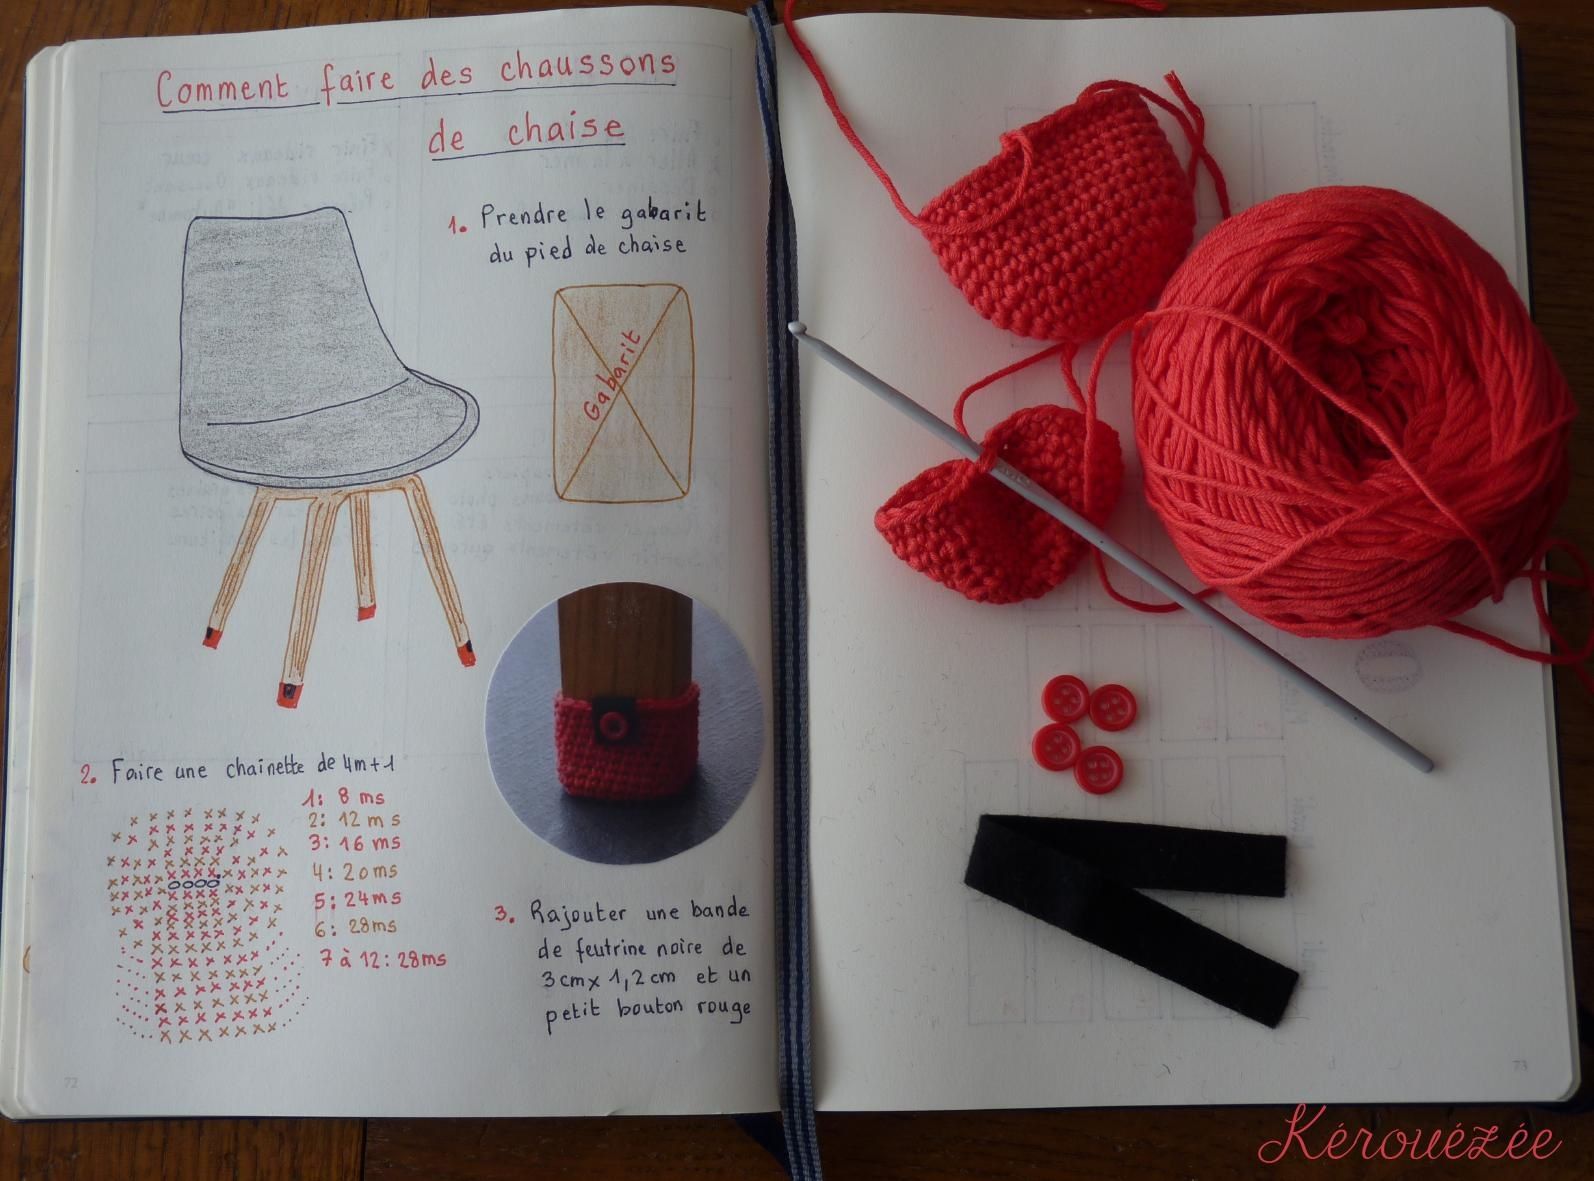 Comment faire des chaussons
de chaise
1. Prendre le gabarit
du pied de chaise
Gabarit
2. Faire une chainette de 4m+1
1: 8 ms
2: 12 ms
3: 16 ms
4: 20ms
5: 24ms
6: 28ms
7 à 12: 28ms
3. Rajouter une bande
de feutrine noire de
3cm x 1,2 cm et un
petit bouton rouge
72
73
Kérouézée